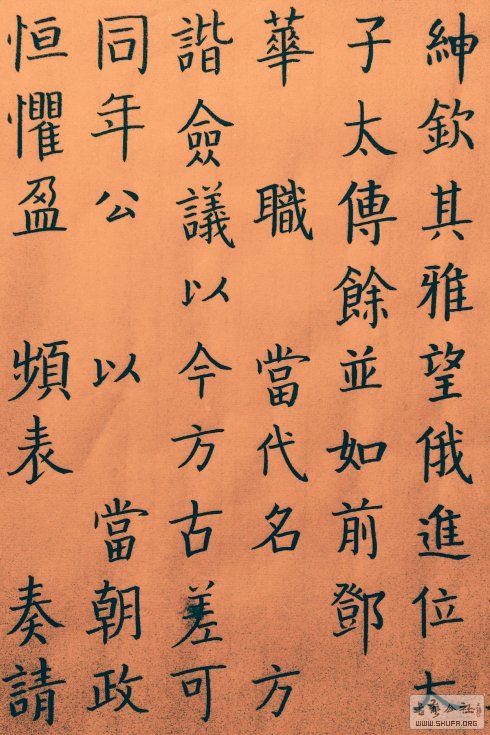 紳欽其雅望俄進位太
子太傅餘並如前鄧
華 職 當代名 方
諧僉議以今方古差可
同年公 以 當朝政
恒懼盈 頻表 奏請
WWW.SHUFA.ORG